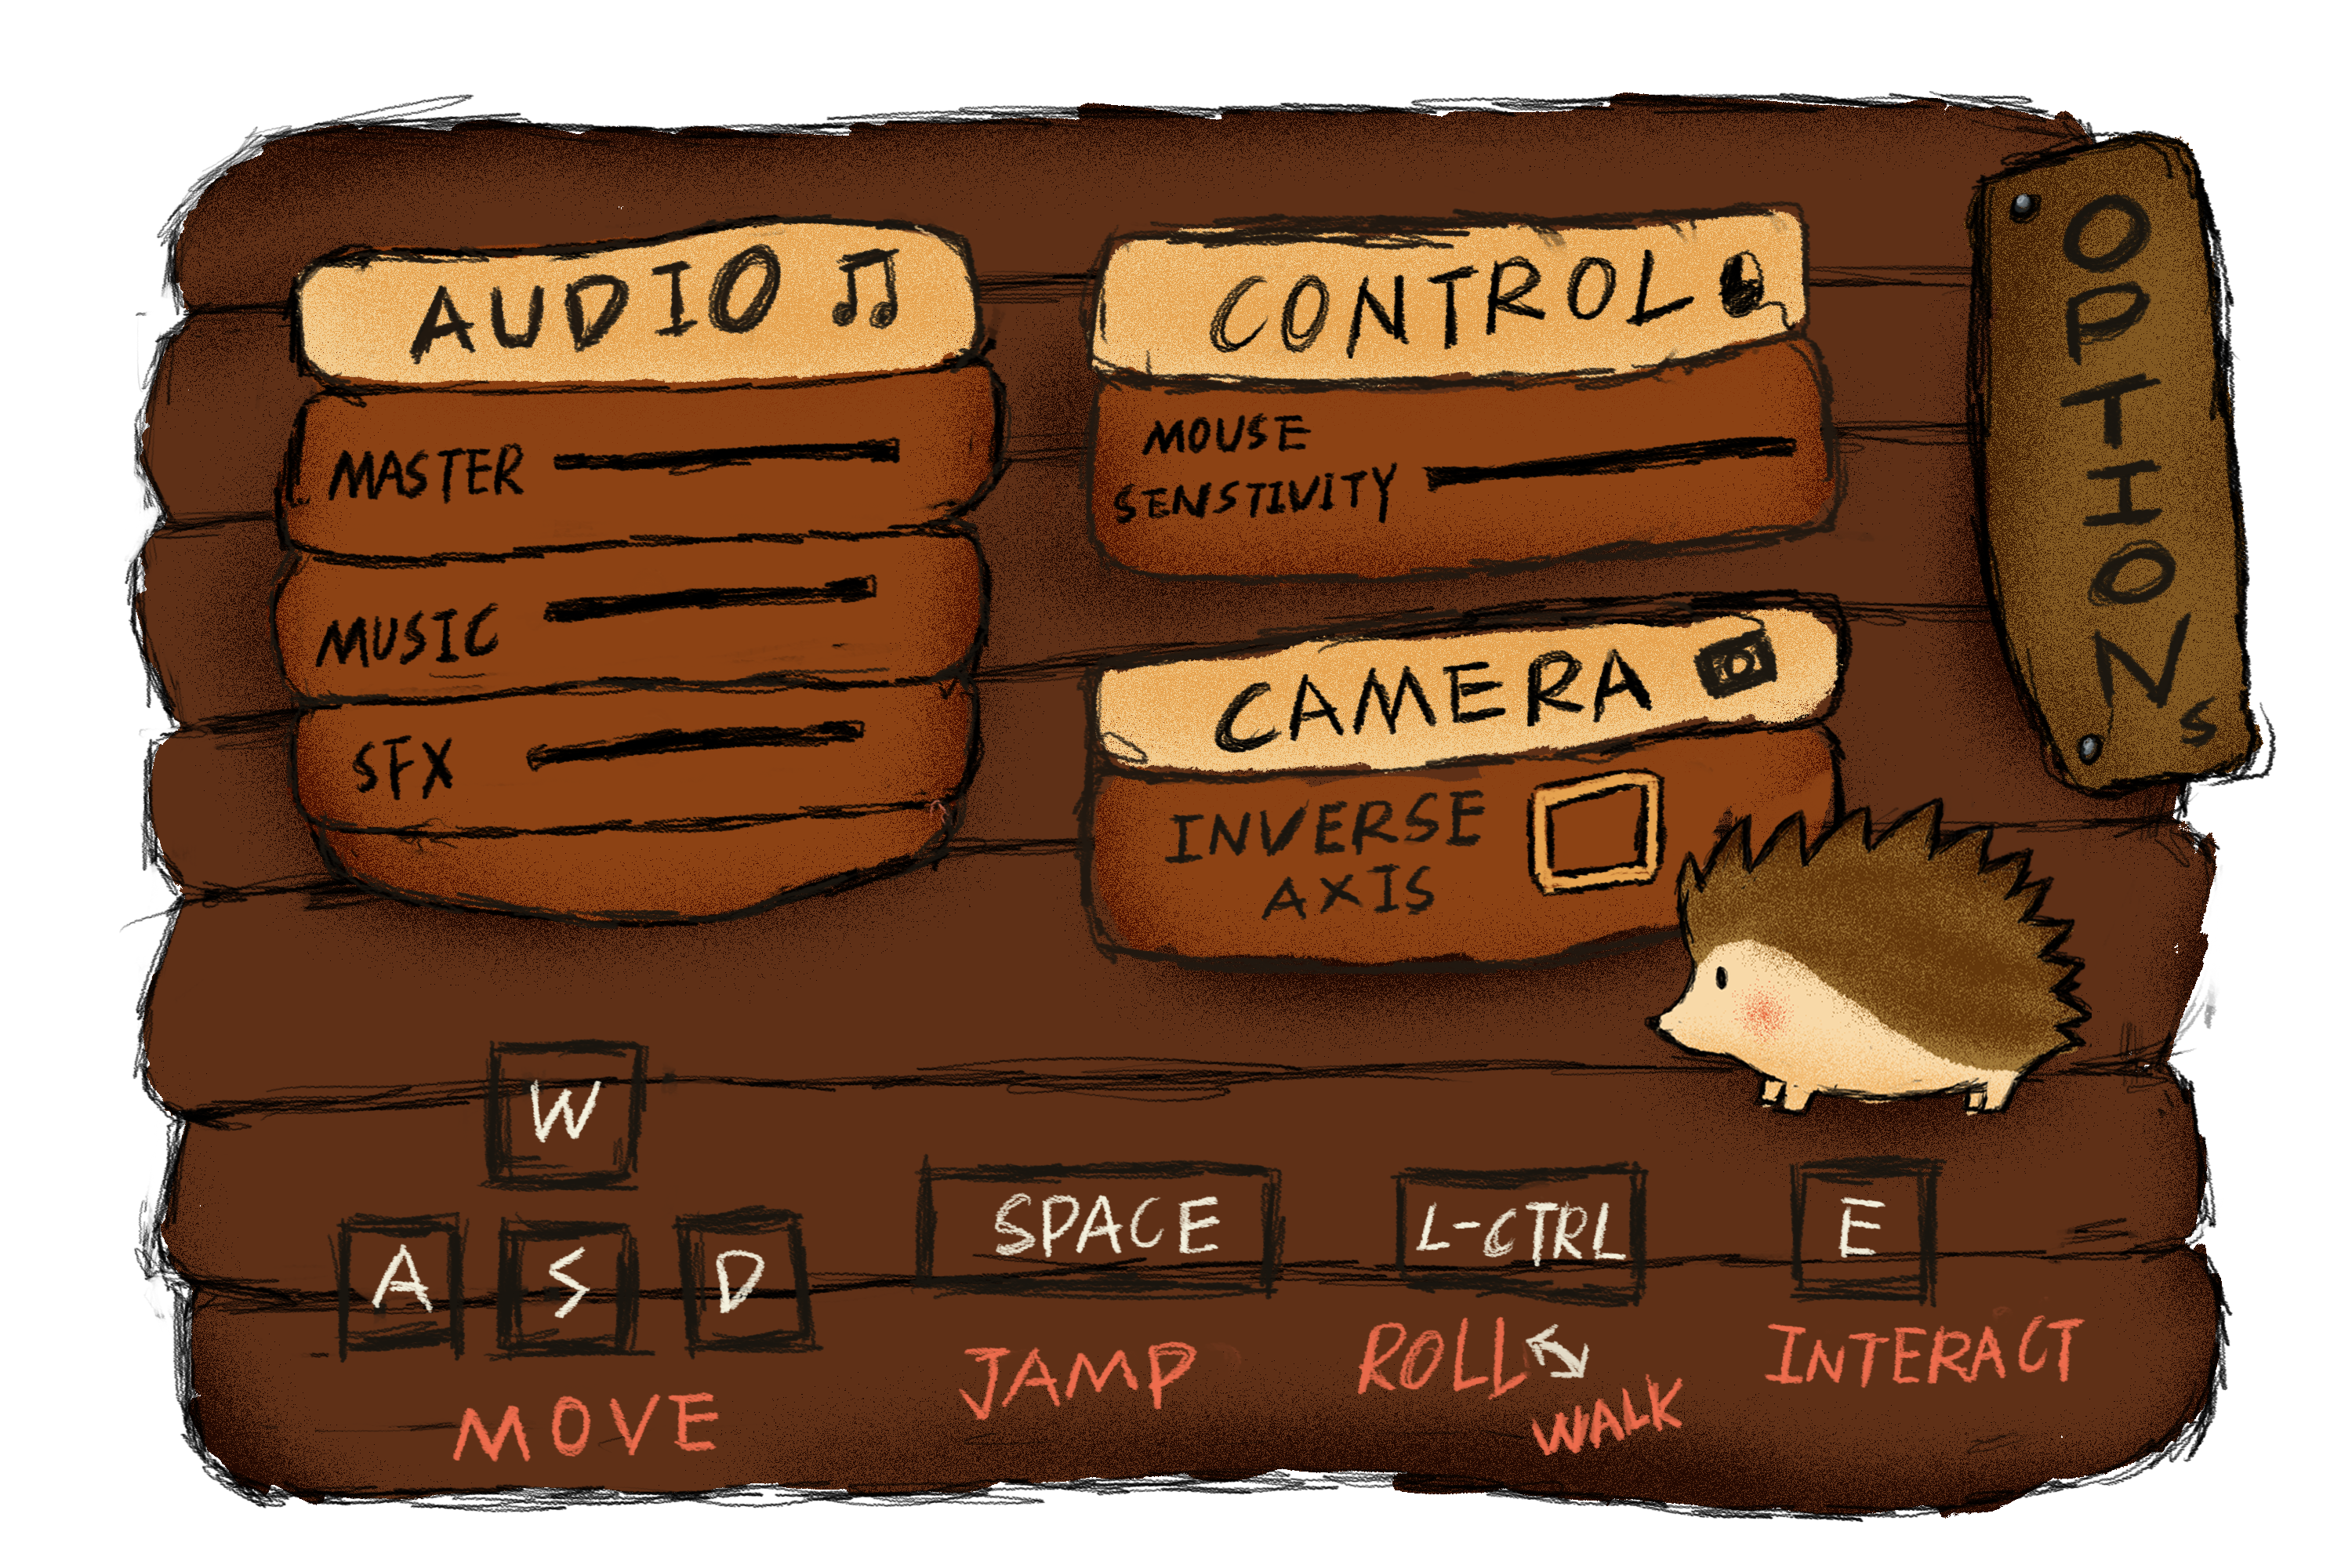 OPTIONS
AUDIO
MASTER
MUSIC
SFX
CONTROL
MOUSE
SENSTIVITY
CAMERA
INVERSE
AXIS
W
A S D
MOVE
SPACE
JAMP
L-CTRL
ROLL
WALK
E
INTERACT